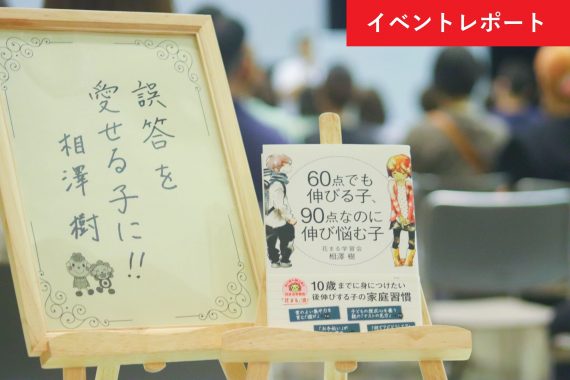 イベントレポート
誤答を
愛せる子に!!
相澤樹
60点でも
伸びる子、
90点なのに
伸び悩む子
花まる学習会
相澤 樹
10歳までに身につけたい
後伸びする子の家庭習慣